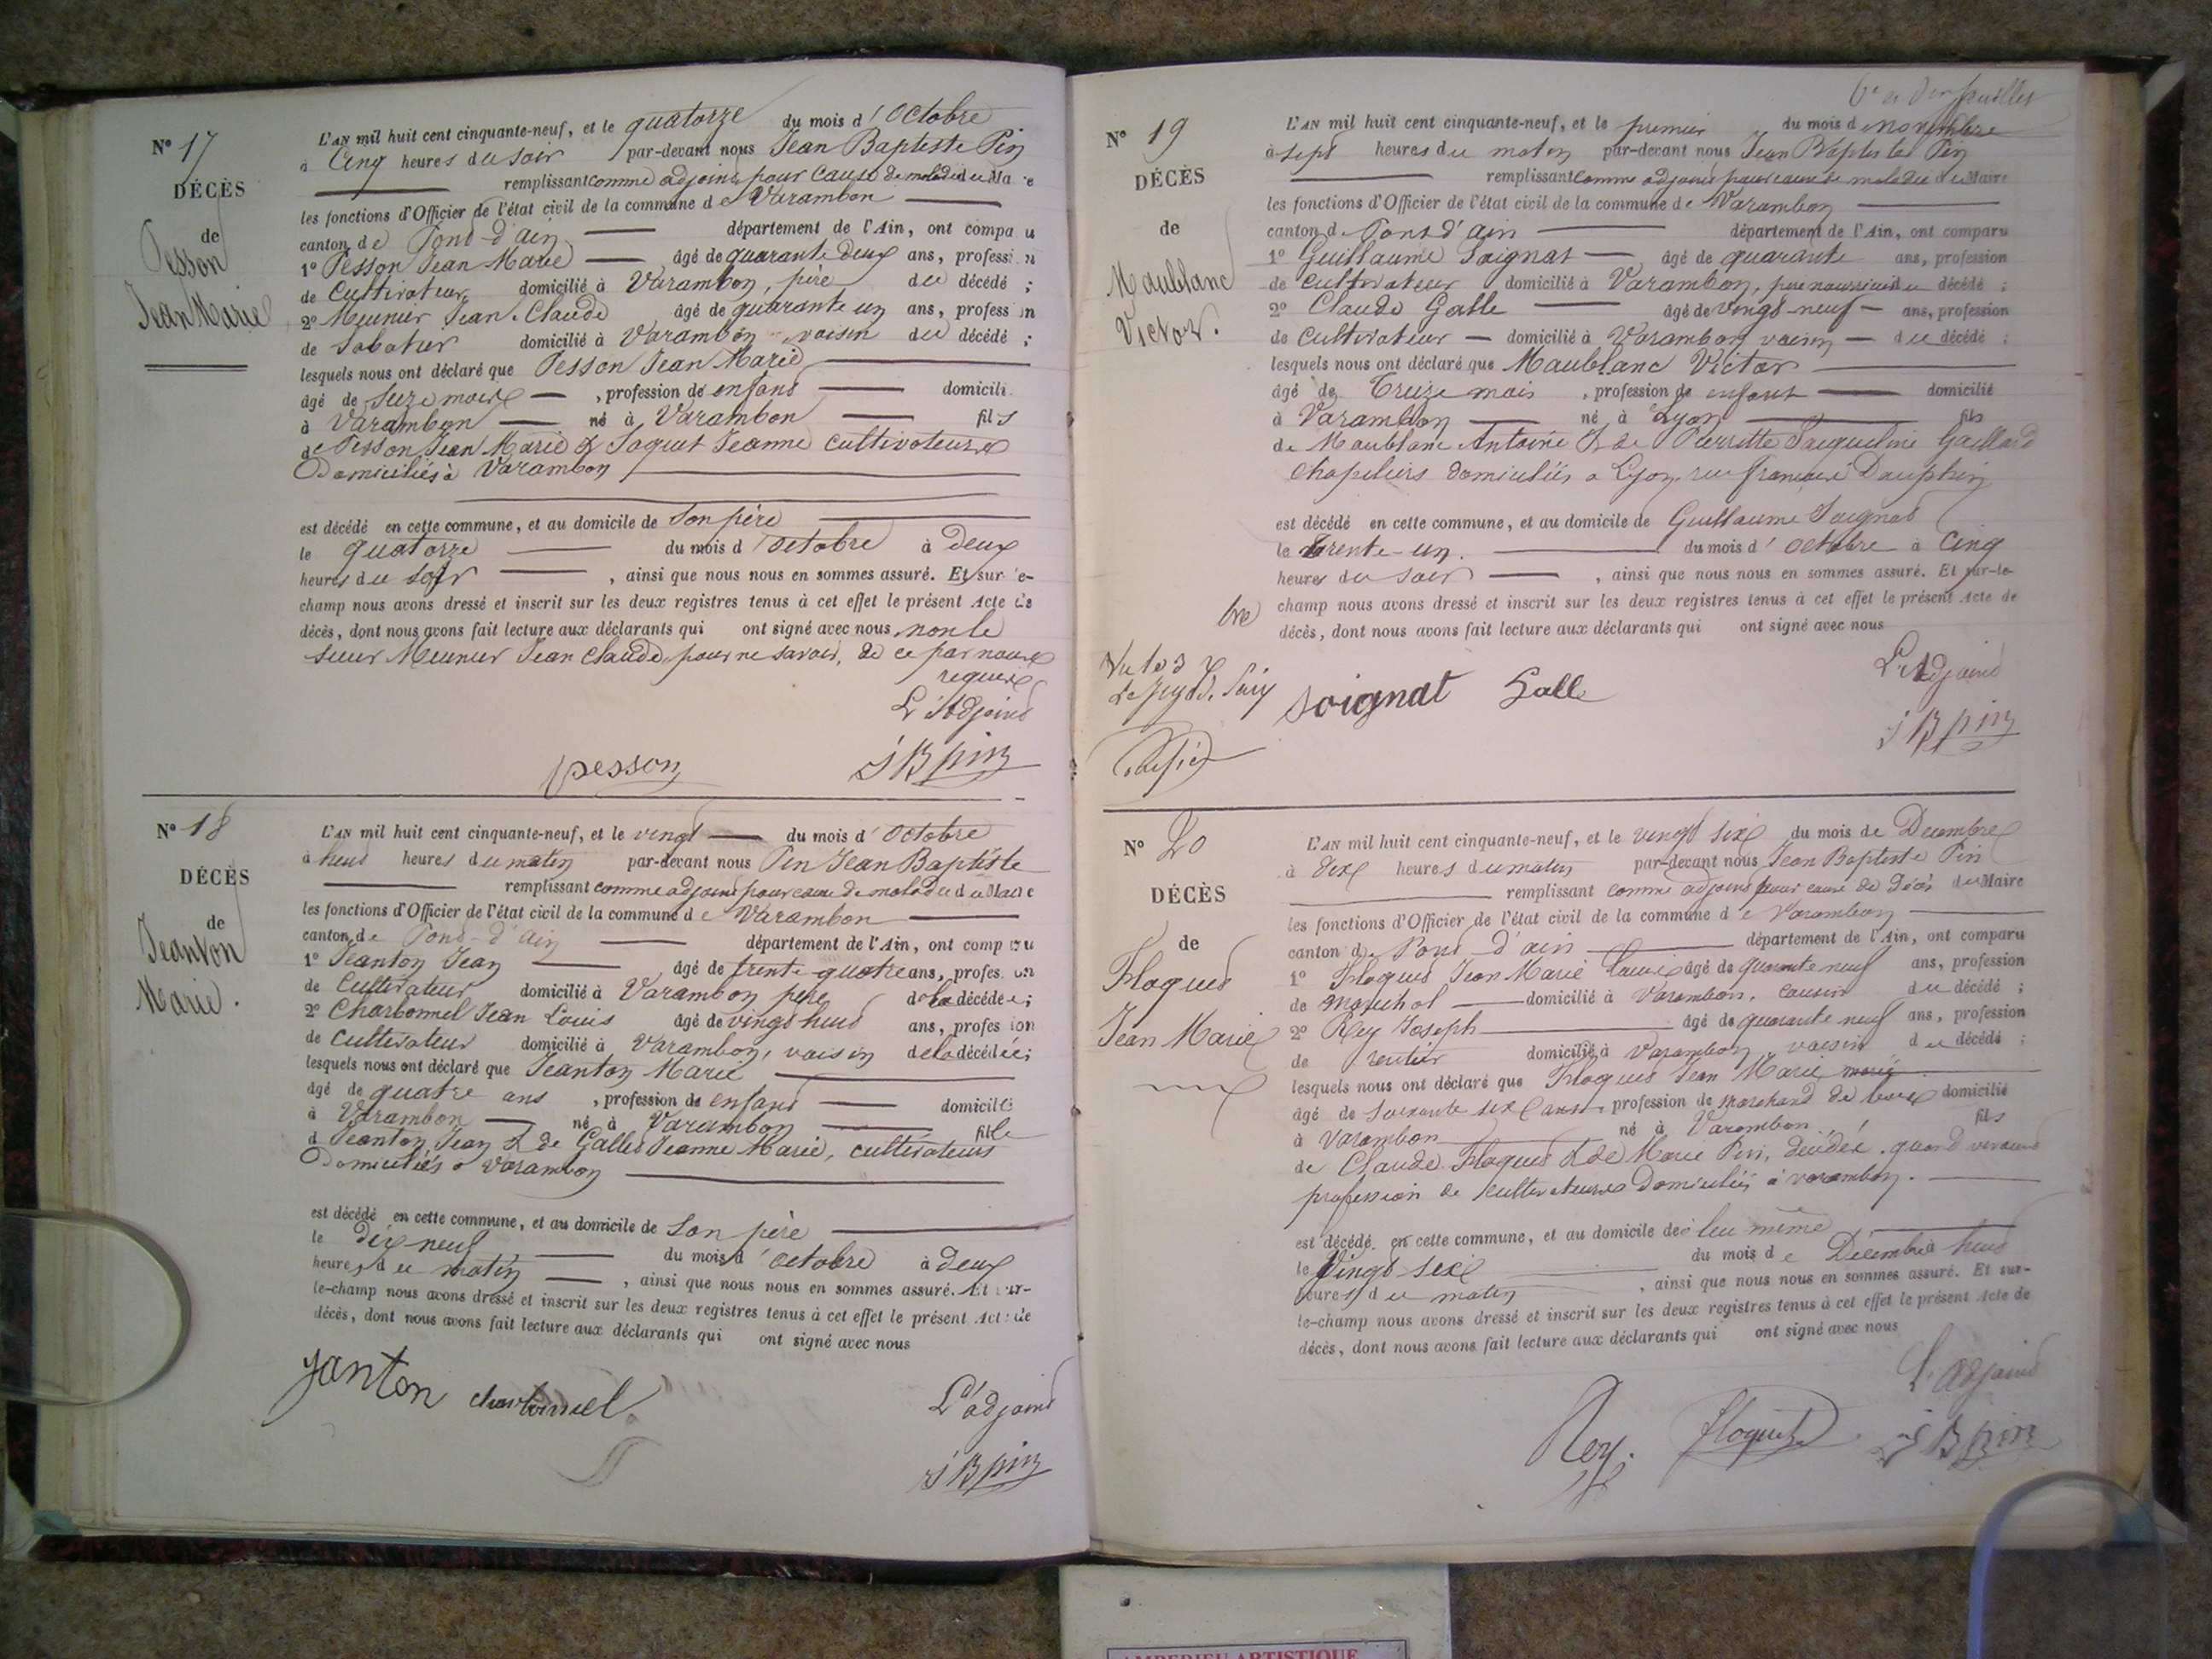 N° 17
DÉCÈS
de
Pesson
Jean Marie
L'AN mil huit cent cinquante-neuf, et le quatorze du mois d'Octobre
à Cinq heures du soir par-devant nous Jean Baptiste Pin
remplissant comme adjoint pour cause de maladie du Ma e
les fonctions d'Officier de l'état civil de la commune de Varambon
canton de Pont-d'ain département de l'Ain, ont compa u
1° Pesson Jean Marie âgé de quarante deux ans, professi n
de Cultivateur domicilié à Varambon, père du décédé ;
2° Meunier Jean Claude âgé de quarante un ans, profess on
de Sabotier domicilié à Varambon voisin du décédé ;
lesquels nous ont déclaré que Pesson Jean Marie
âgé de seize mois , profession de enfant domicili
à Varambon né à Varambon fils
de Pesson Jean Marie & Joquet Jeanne cultivateurs
Domiciliés à Varambon
est décédé en cette commune, et au domicile de Son père
le quatorze du mois d'octobre à deux
heures du soir , ainsi que nous nous en sommes assuré. Et sur e-
champ nous avons dressé et inscrit sur les deux registres tenus à cet effet le présent Acte de
décès, dont nous avons fait lecture aux déclarants qui ont signé avec nous, non le
sieur Meunier Jean Claude, pour ne savoir, de ce par nous
requis
L'Adjoint
pesson J B pin
N° 18
DÉCÈS
de
Jeanton
Marie.
L'AN mil huit cent cinquante-neuf, et le vingt du mois d'octobre
à huit heures du matin par-devant nous Pin Jean Baptiste
remplissant comme adjoint pour cause de maladie du Maire
les fonctions d'Officier de l'état civil de la commune de Varambon
canton de Pont-d'ain département de l'Ain, ont comp ru
1° Jeanton Jean âgé de trente quatre ans, profes on
de Cultivateur domicilié à Varambon père de la décédée ;
2° Charbonnel Jean Louis âgé de vingt huit ans, profes ion
de Cultivateur domicilié à Varambon, voisin de la décédée ;
lesquels nous ont déclaré que Jeanton Marie
âgé de quatre ans , profession de enfant domicilé
à Varambon né à Varambon fille
d Jeanton Jean & de Gallet Jeanne Marie, cultivateurs
Domiciliés à Varambon
est décédé en cette commune, et au domicile de Son père
le dix neuf du mois d'octobre à deux
heures du matin , ainsi que nous nous en sommes assuré. Et sur-
le-champ nous avons dressé et inscrit sur les deux registres tenus à cet effet le présent Acte de
décès, dont nous avons fait lecture aux déclarants qui ont signé avec nous
Janton Charbonnel L'adjoint
J B pin
N° 19
DÉCÈS
de
Maublanc
Victor.
L'AN mil huit cent cinquante-neuf, et le premier du mois de novembre
à sept heures du matin par-devant nous Jean Baptiste Pin
remplissant comme adjoint pour cause de maladie du Maire
les fonctions d'Officier de l'état civil de la commune de Varambon
canton de Pont d'ain département de l'Ain, ont comparu
1° Guillaume Soignat âgé de quarante ans, profession
de cultivateur domicilié à Varambon, père nourricier du décédé ;
2° Claude Galle âgé de vingt-neuf ans, profession
de Cultivateur domicilié à Varambon voisin du décédé ;
lesquels nous ont déclaré que Maublanc Victor
âgé de Treize mois , profession de enfant domicilié
à Varambon né à Lyon fils
de Maublanc Antoine & de Pierrette Jacqueline Gaillard
chapeliers domiciliés à Lyon, rue françois Dauphin
est décédé en cette commune, et au domicile de Guillaume Soignat
le trente-un. du mois d'octobre à Cinq
heures du soir , ainsi que nous nous en sommes assuré. Et sur-le-
champ nous avons dressé et inscrit sur les deux registres tenus à cet effet le présent Acte de
décès, dont nous avons fait lecture aux déclarants qui ont signé avec nous
L'Adjoint
Soignat Galle
J B pin
N° 20
DÉCÈS
de
Floquet
Jean Marie
L'AN mil huit cent cinquante-neuf, et le vingt six du mois de Decembre
à dix heures du matin par-devant nous Jean Baptiste Pin
remplissant comme adjoint pour cause de Décès du Maire
les fonctions d'Officier de l'état civil de la commune de Varambon
canton de Pont-d'ain département de l'Ain, ont comparu
1° Floquet Jean Marie Louis âgé de quarante neuf ans, profession
de maréchal domicilié à Varambon, cousin du décédé ;
2° Rey Joseph âgé de quarante neuf ans, profession
de rentier domicilié à Varambon voisin du décédé ;
lesquels nous ont déclaré que Floquet Jean Marie
âgé de soixante six ans, profession de marchand de bois domicilié
à Varambon né à Varambon fils
de Claude Floquet & de Marie Pin, décédés. quand vivaient
profession de cultivateurs Domiciliés à varambon.
est décédé en cette commune, et au domicile de lui même
le Vingt six du mois de Décembre à huit
heures du matin , ainsi que nous nous en sommes assuré. Et sur-
le-champ nous avons dressé et inscrit sur les deux registres tenus à cet effet le présent Acte de
décès, dont nous avons fait lecture aux déclarants qui ont signé avec nous
L'adjoint
Rey. floquet J B pin
AMPERIEU ARTISTIQUE